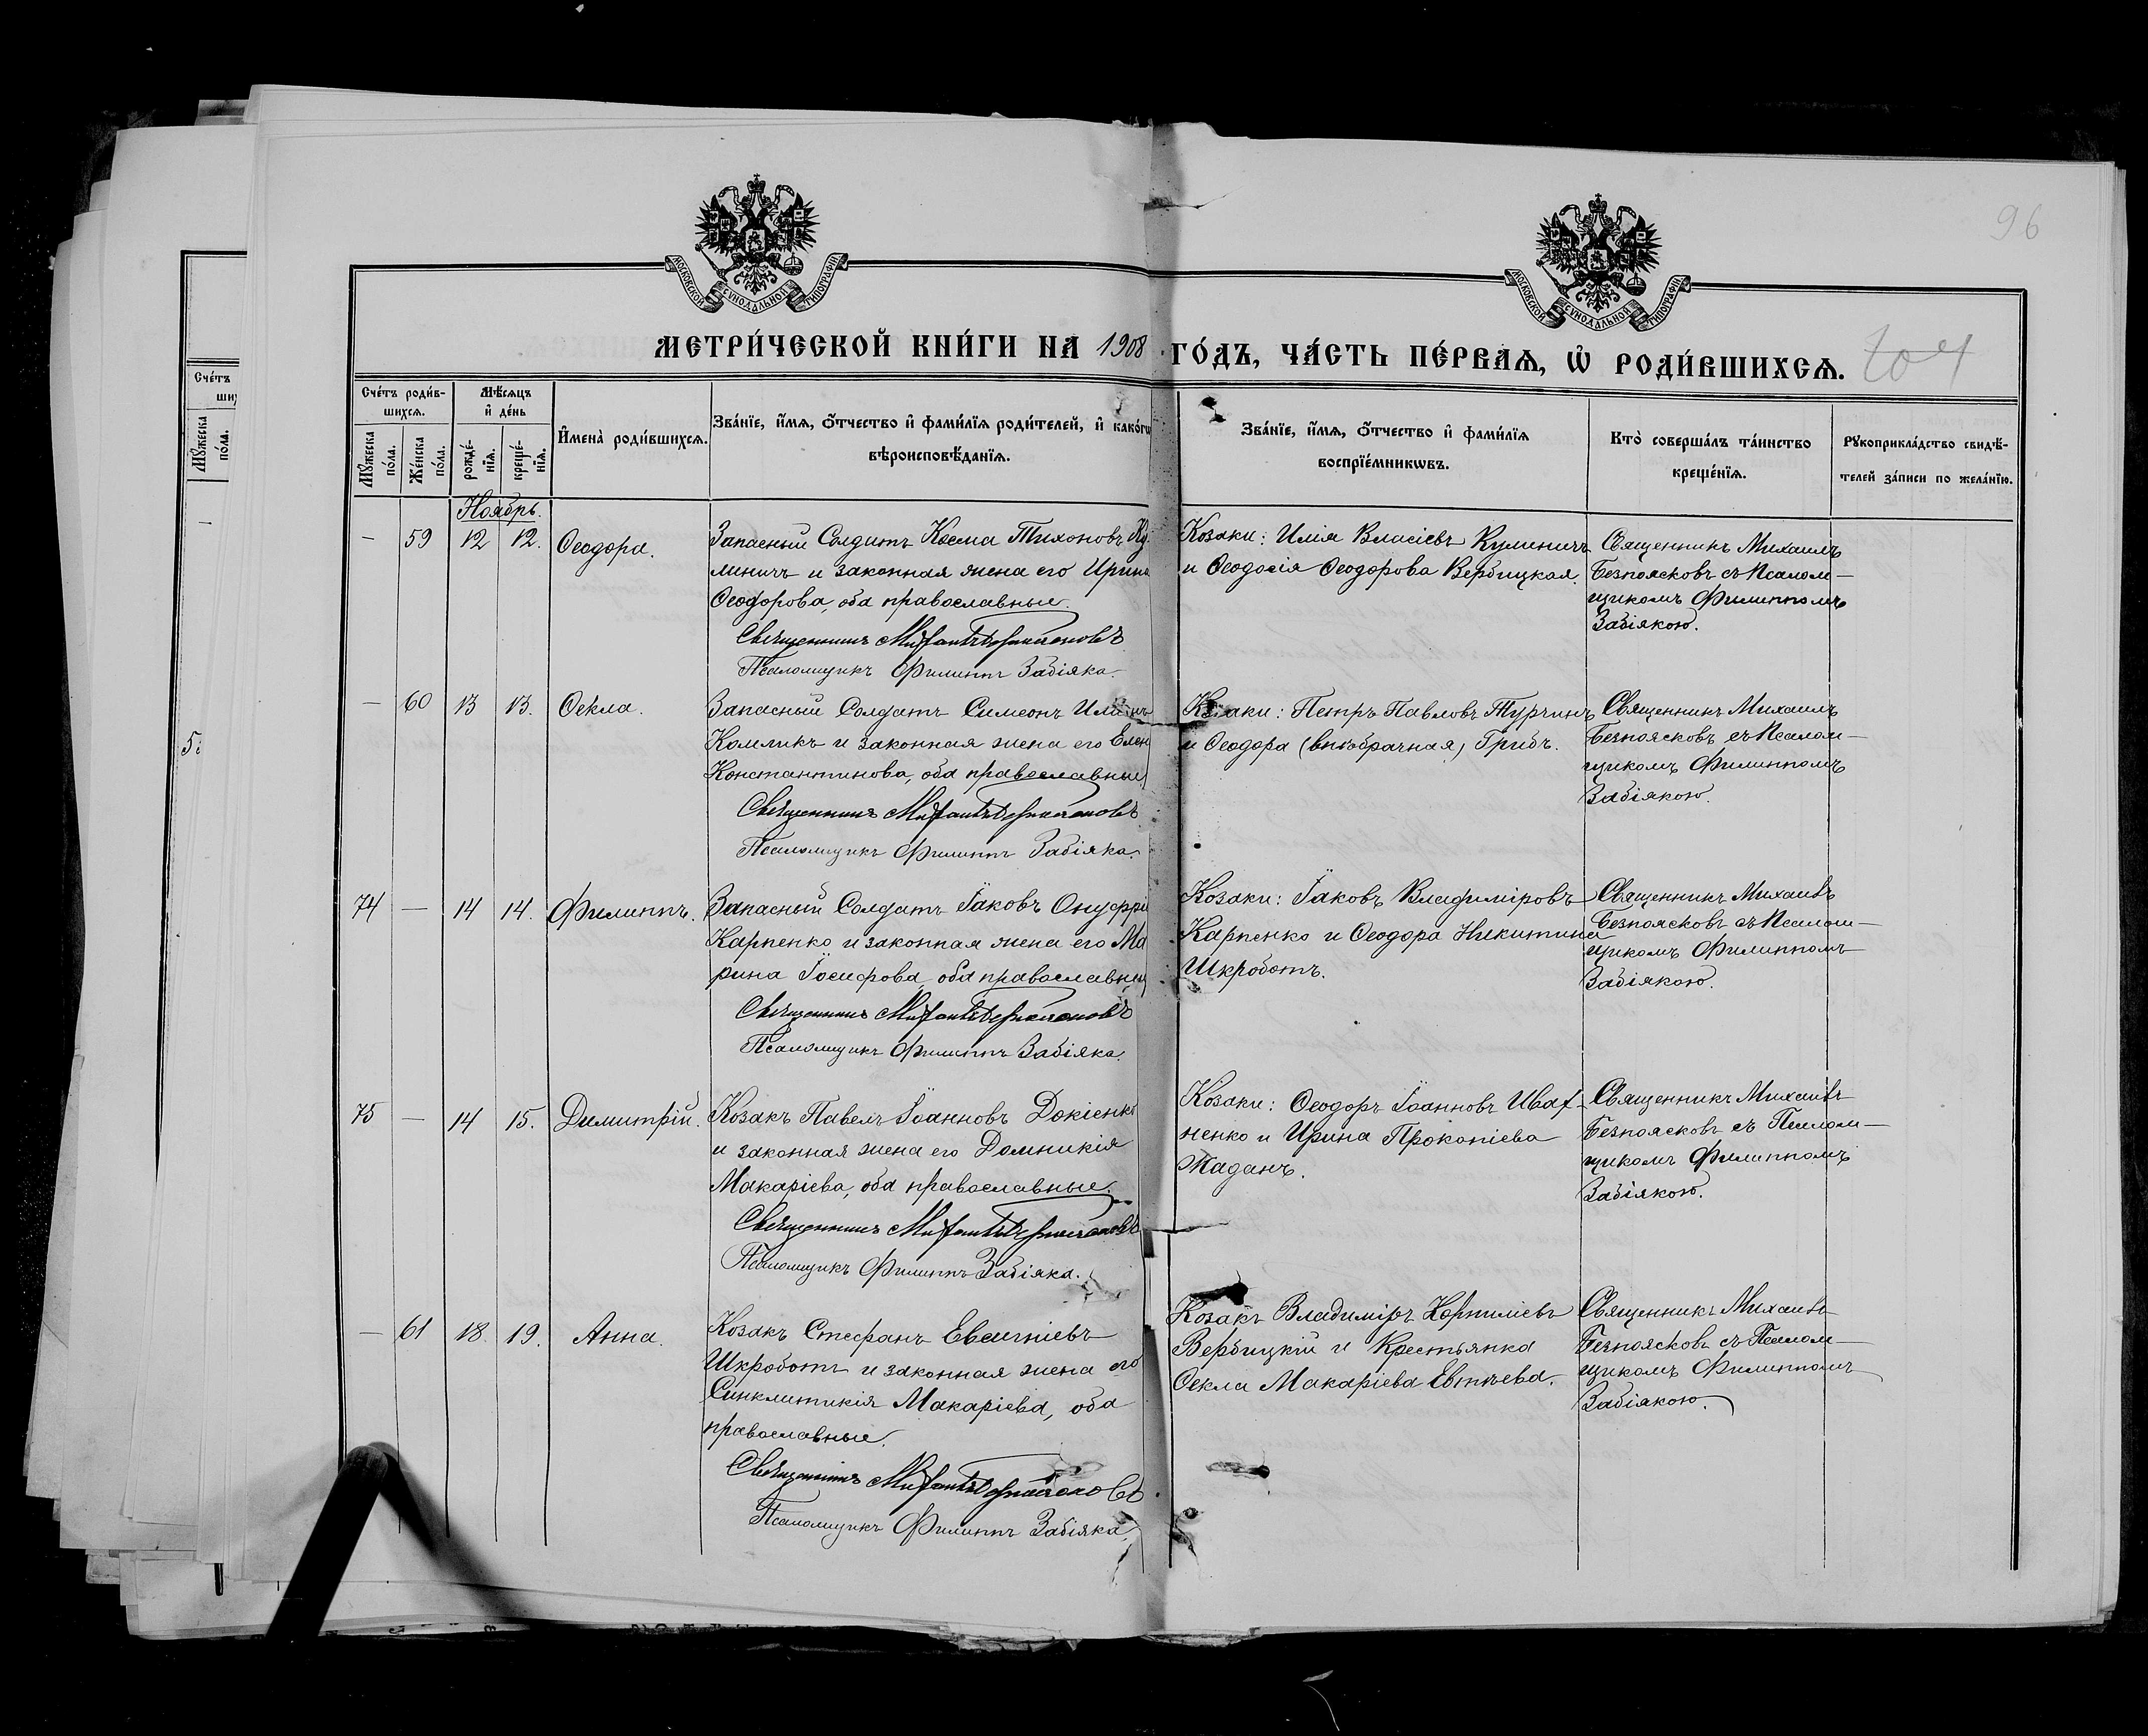 96
МОСКОВСКОЙ СУНОДАЛЬНОЙ ТИПОГРАФІИ
МОСКОВСКОЙ СУНОДАЛЬНОЙ ТИПОГРАФІИ
МЕТРИ́ЧЕСКОЙ КНИ́ГИ НА 1908 ГО́ДЪ, ЧА́СТЬ ПЕ́РВАѦ, Ѡ҆ РОДИ́ВШИХСѦ.
Сче́тъ роди́в-
шихсѧ.
Мꙋ́жеска по́ла.
Же́нска по́ла.
Мѣ́сѧцъ
и҆ де́нь
рожде́-
нїѧ.
креще́-
нїѧ.
И҆мена̀ роди́вшихсѧ.
Зва́нїе, и҆́мѧ, ѻ҆́тчество и҆ фами́лїѧ роди́телей, и҆ како́гѡ
вѣроисповѣ́данїѧ.
Зва́нїе, и҆́мѧ, ѻ҆́тчество и҆ фами́лїѧ
воспрїе́мникѡвъ.
Кто̀ соверша́лъ та́инство
креще́нїѧ.
Рꙋкоприкла́дство свидѣ́-
телей за́писи по жела́нїю.
Ноябрь.
— 59 12 12. Ѳеодора.
Запасный Солдатъ Косма Тихоновъ Ку
линичъ и законная жена его Ирина
Ѳеодорова, оба православные.
Священникъ Михаилъ Безпоясковъ
Псаломщикъ Филиппъ Забіяка.
Козаки: Илія Власіевъ Кулиничъ
и Ѳеодосія Ѳеодорова Вербицкая.
Священникъ Михаилъ
Безпоясковъ съ Псалом—
щикомъ Филиппомъ
Забіякою.
— 60 13 13. Ѳекла.
Запасный Солдатъ Симеонъ
Комликъ и законная жена его Елен
Константинова, оба православные
Священникъ Михаилъ Безпоясковъ
Псаломщикъ Филиппъ Забіяка.
Козаки: Петръ Павловъ Турчинъ
и Ѳеодора (внѣбрачная) Грибъ.
Священникъ Михаилъ
Безпоясковъ съ Псалом—
щикомъ Филиппомъ
Забіякою.
74 — 14 14. Филиппъ.
Запасный Солдатъ Іаковъ Онуфрі
Карпенко и законная жена его Ма
рина Іосифова, оба православны
Священникъ Михаилъ Безпоясковъ
Псаломщикъ Филиппъ Забіяка.
Козаки: Іаковъ Владиміровъ
Карпенко и Ѳеодора Никитина
Шкроботъ.
Священникъ Михаилъ
Безпоясковъ съ Псалом—
щикомъ Филиппомъ
Забіякою.
75 — 14 15. Димитрій.
Козакъ Павелъ Іоанновъ Докіенко
и законная жена его Домникія
Макаріева, оба православные.
Священникъ Михаилъ Безпоясковъ
Псаломщикъ Филиппъ Забіяка.
Козаки: Ѳеодоръ Іоанновъ Ивах-
ненко и Ирина Прокопіева
Жаданъ.
Священникъ Михаилъ
Безпоясковъ съ Псалом—
щикомъ Филиппомъ
Забіякою.
— 61 18. 19. Анна.
Козакъ Стефанъ Евсигніевъ
Шкроботъ и законная жена его
Синклитикія Макаріева, оба
православные.
Священникъ Михаилъ Безпоясковъ
Псаломщикъ Филиппъ Забіяка.
Козакъ Владиміръ Корниліевъ
Вербицкій и Крестьянка
Ѳекла Макаріева
Священникъ Михаилъ
Безпоясковъ съ Псалом—
щикомъ Филиппомъ
Забіякою.